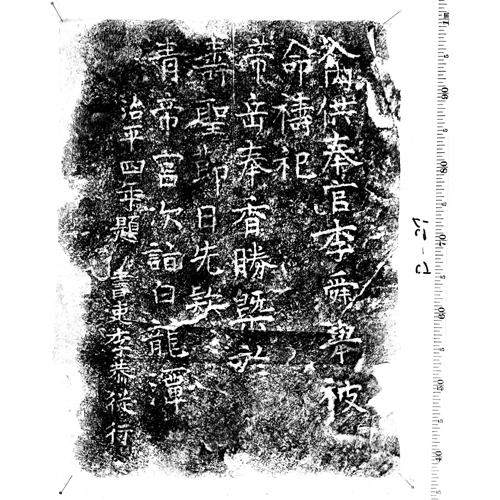 內供奉官李舜舉被
命禱祀
帝岳奉香勝槩於
壽聖日先款
青帝宮次詣白龍潭
治平四年題 李恭從行